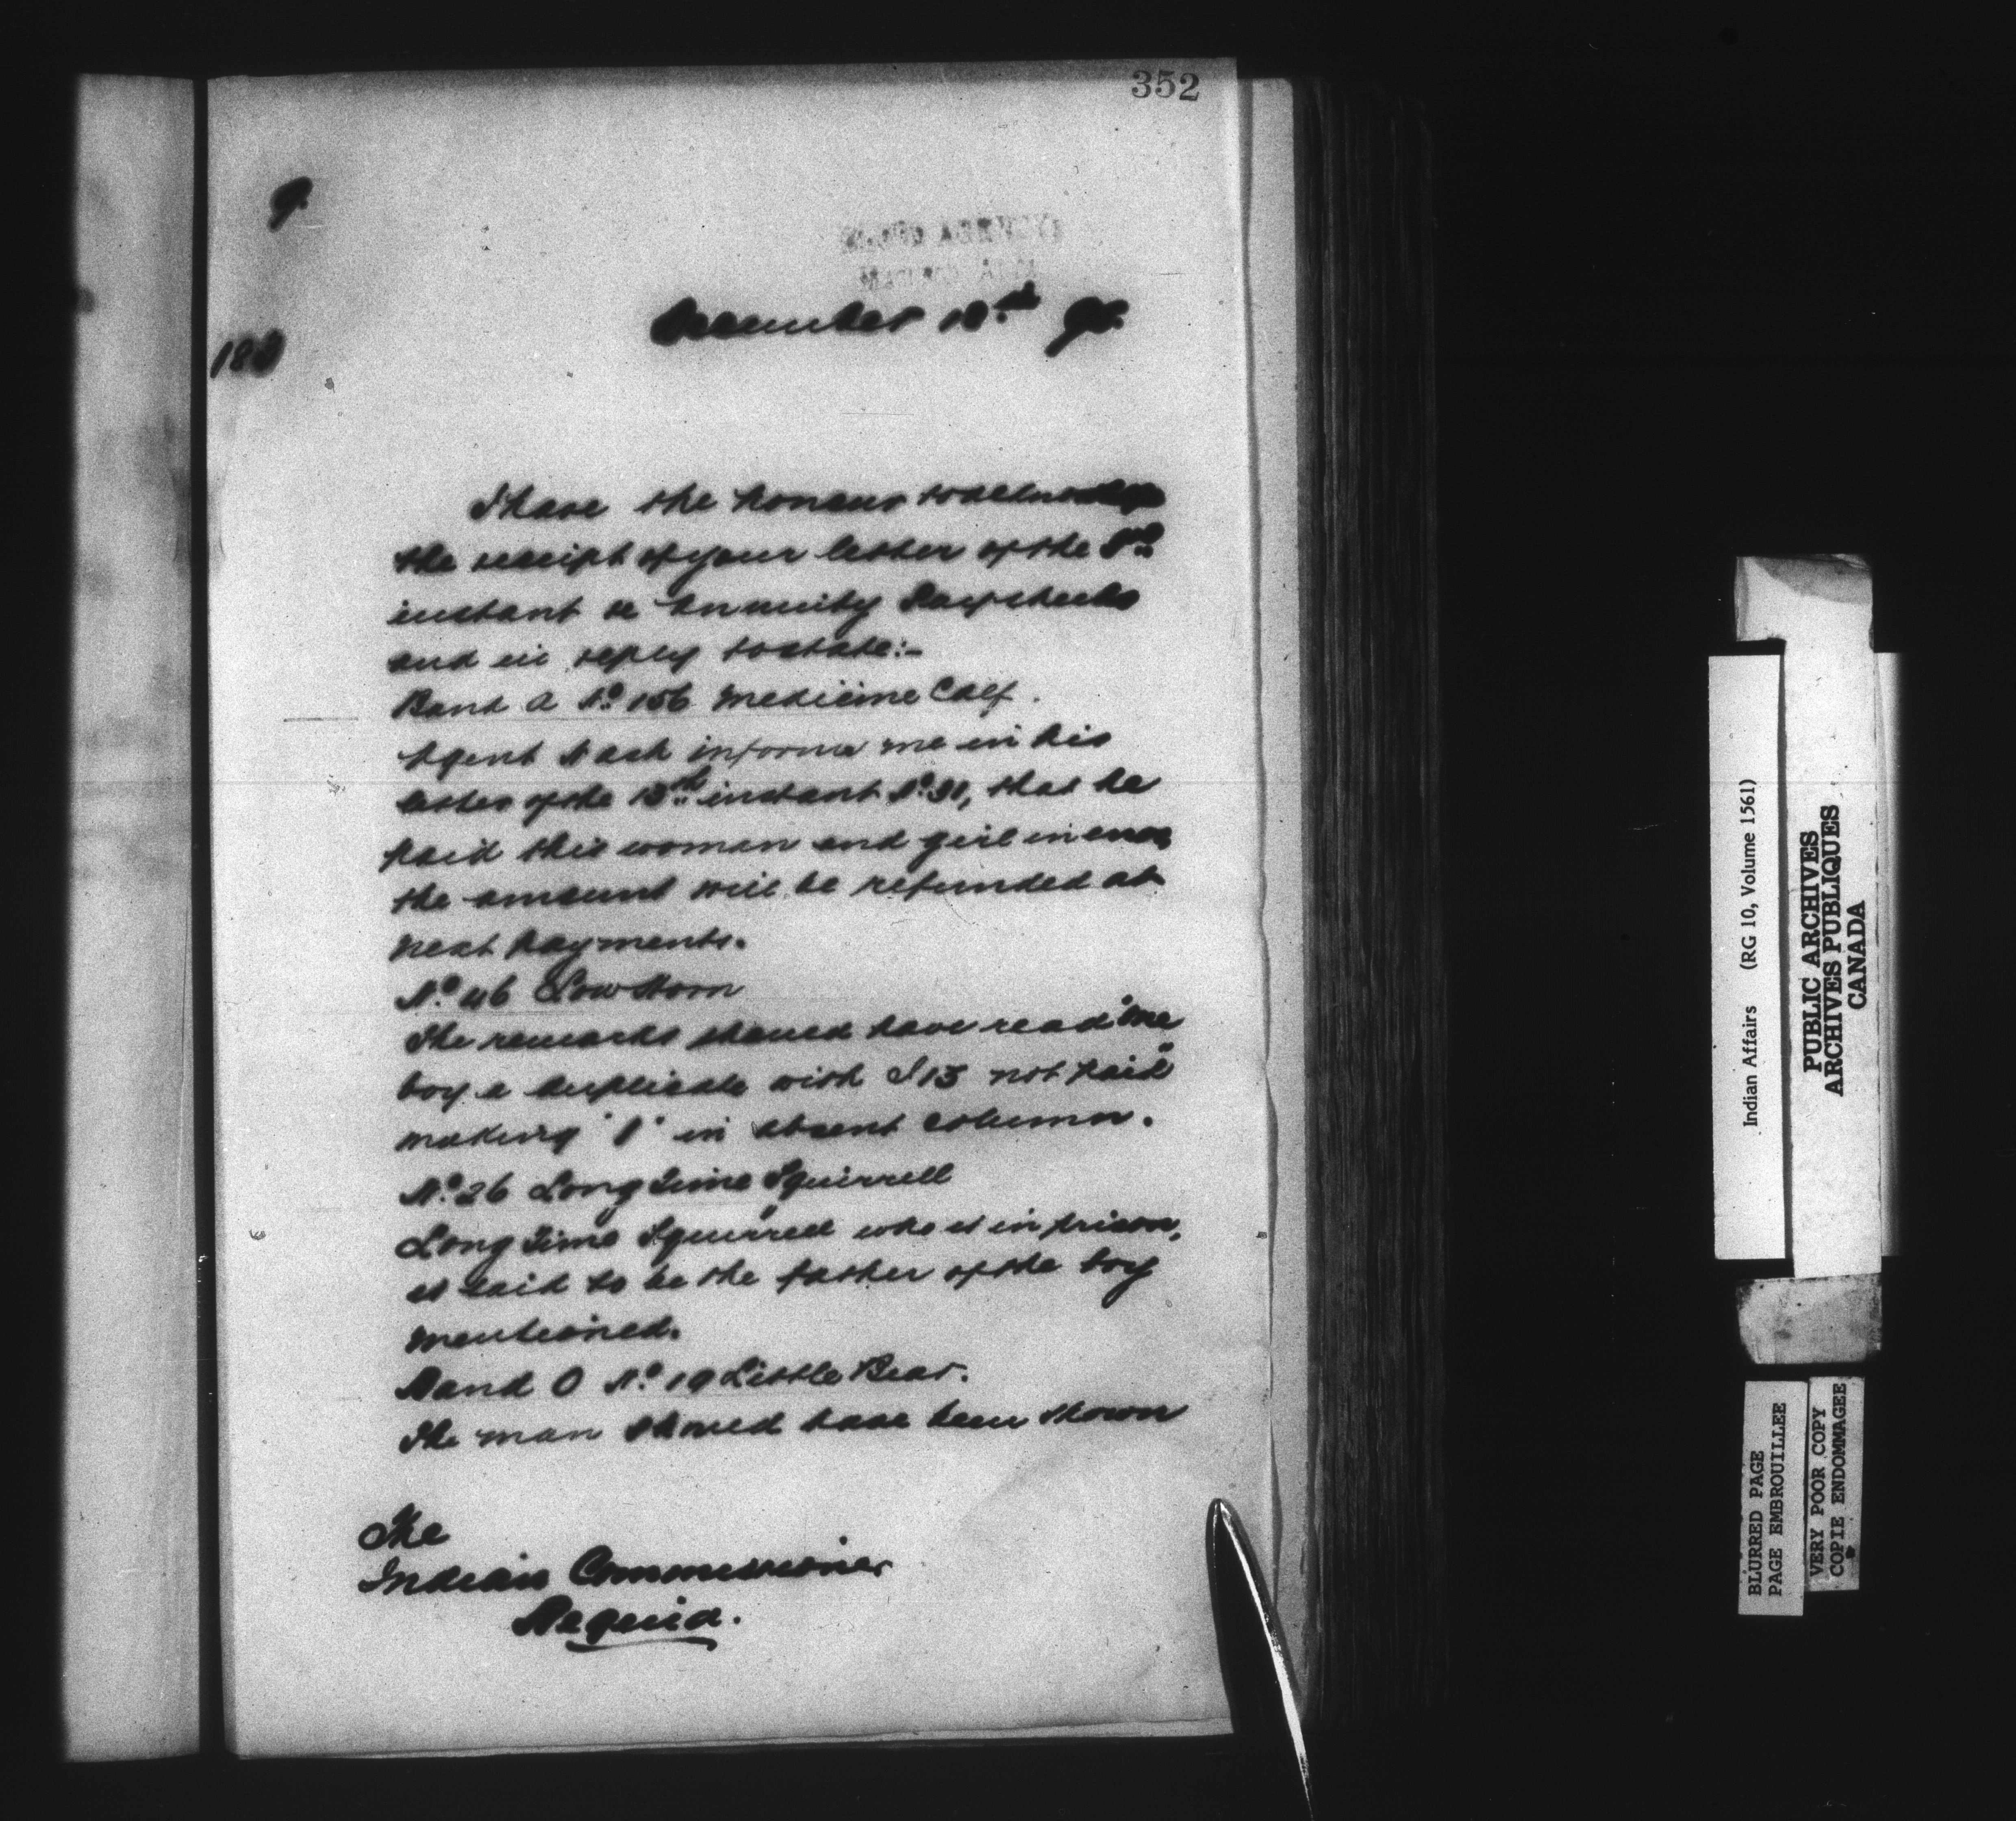 352
BLOOD AGENCY,
MACLEOD, ALTA.
December 18th 98.
I have the honour to acknowledge
the receipt of your letter of the
instant re Annuity Paysheets
and in reply to state:-
Band A No 156 Medicine Calf.
Agent Nash informs me in his
letter of the 13th instant No 31, that he
paid this woman and girl in error
the amount will be refunded at
next payments.
No 46 Low Horn
The remarks should have read "One
boy a duplicate with I 13 not paid"
making '1' in absent column.
No 26 Long Time Squirrell
Long Time Squirrell who is in prison,
is said to be the father of the boy
mentioned.
Band O No 19 Little Bear.
The man should have been shown
The
Indian Commissioner
Regina.
Indian Affairs (RG 10, Volume 1561)
PUBLIC ARCHIVES
ARCHIVES PUBLIQUES
CANADA
BLURRED PAGE
PAGE EMBROUILLEE
VERY POOR COPY
COPIE ENDOMMAGEE